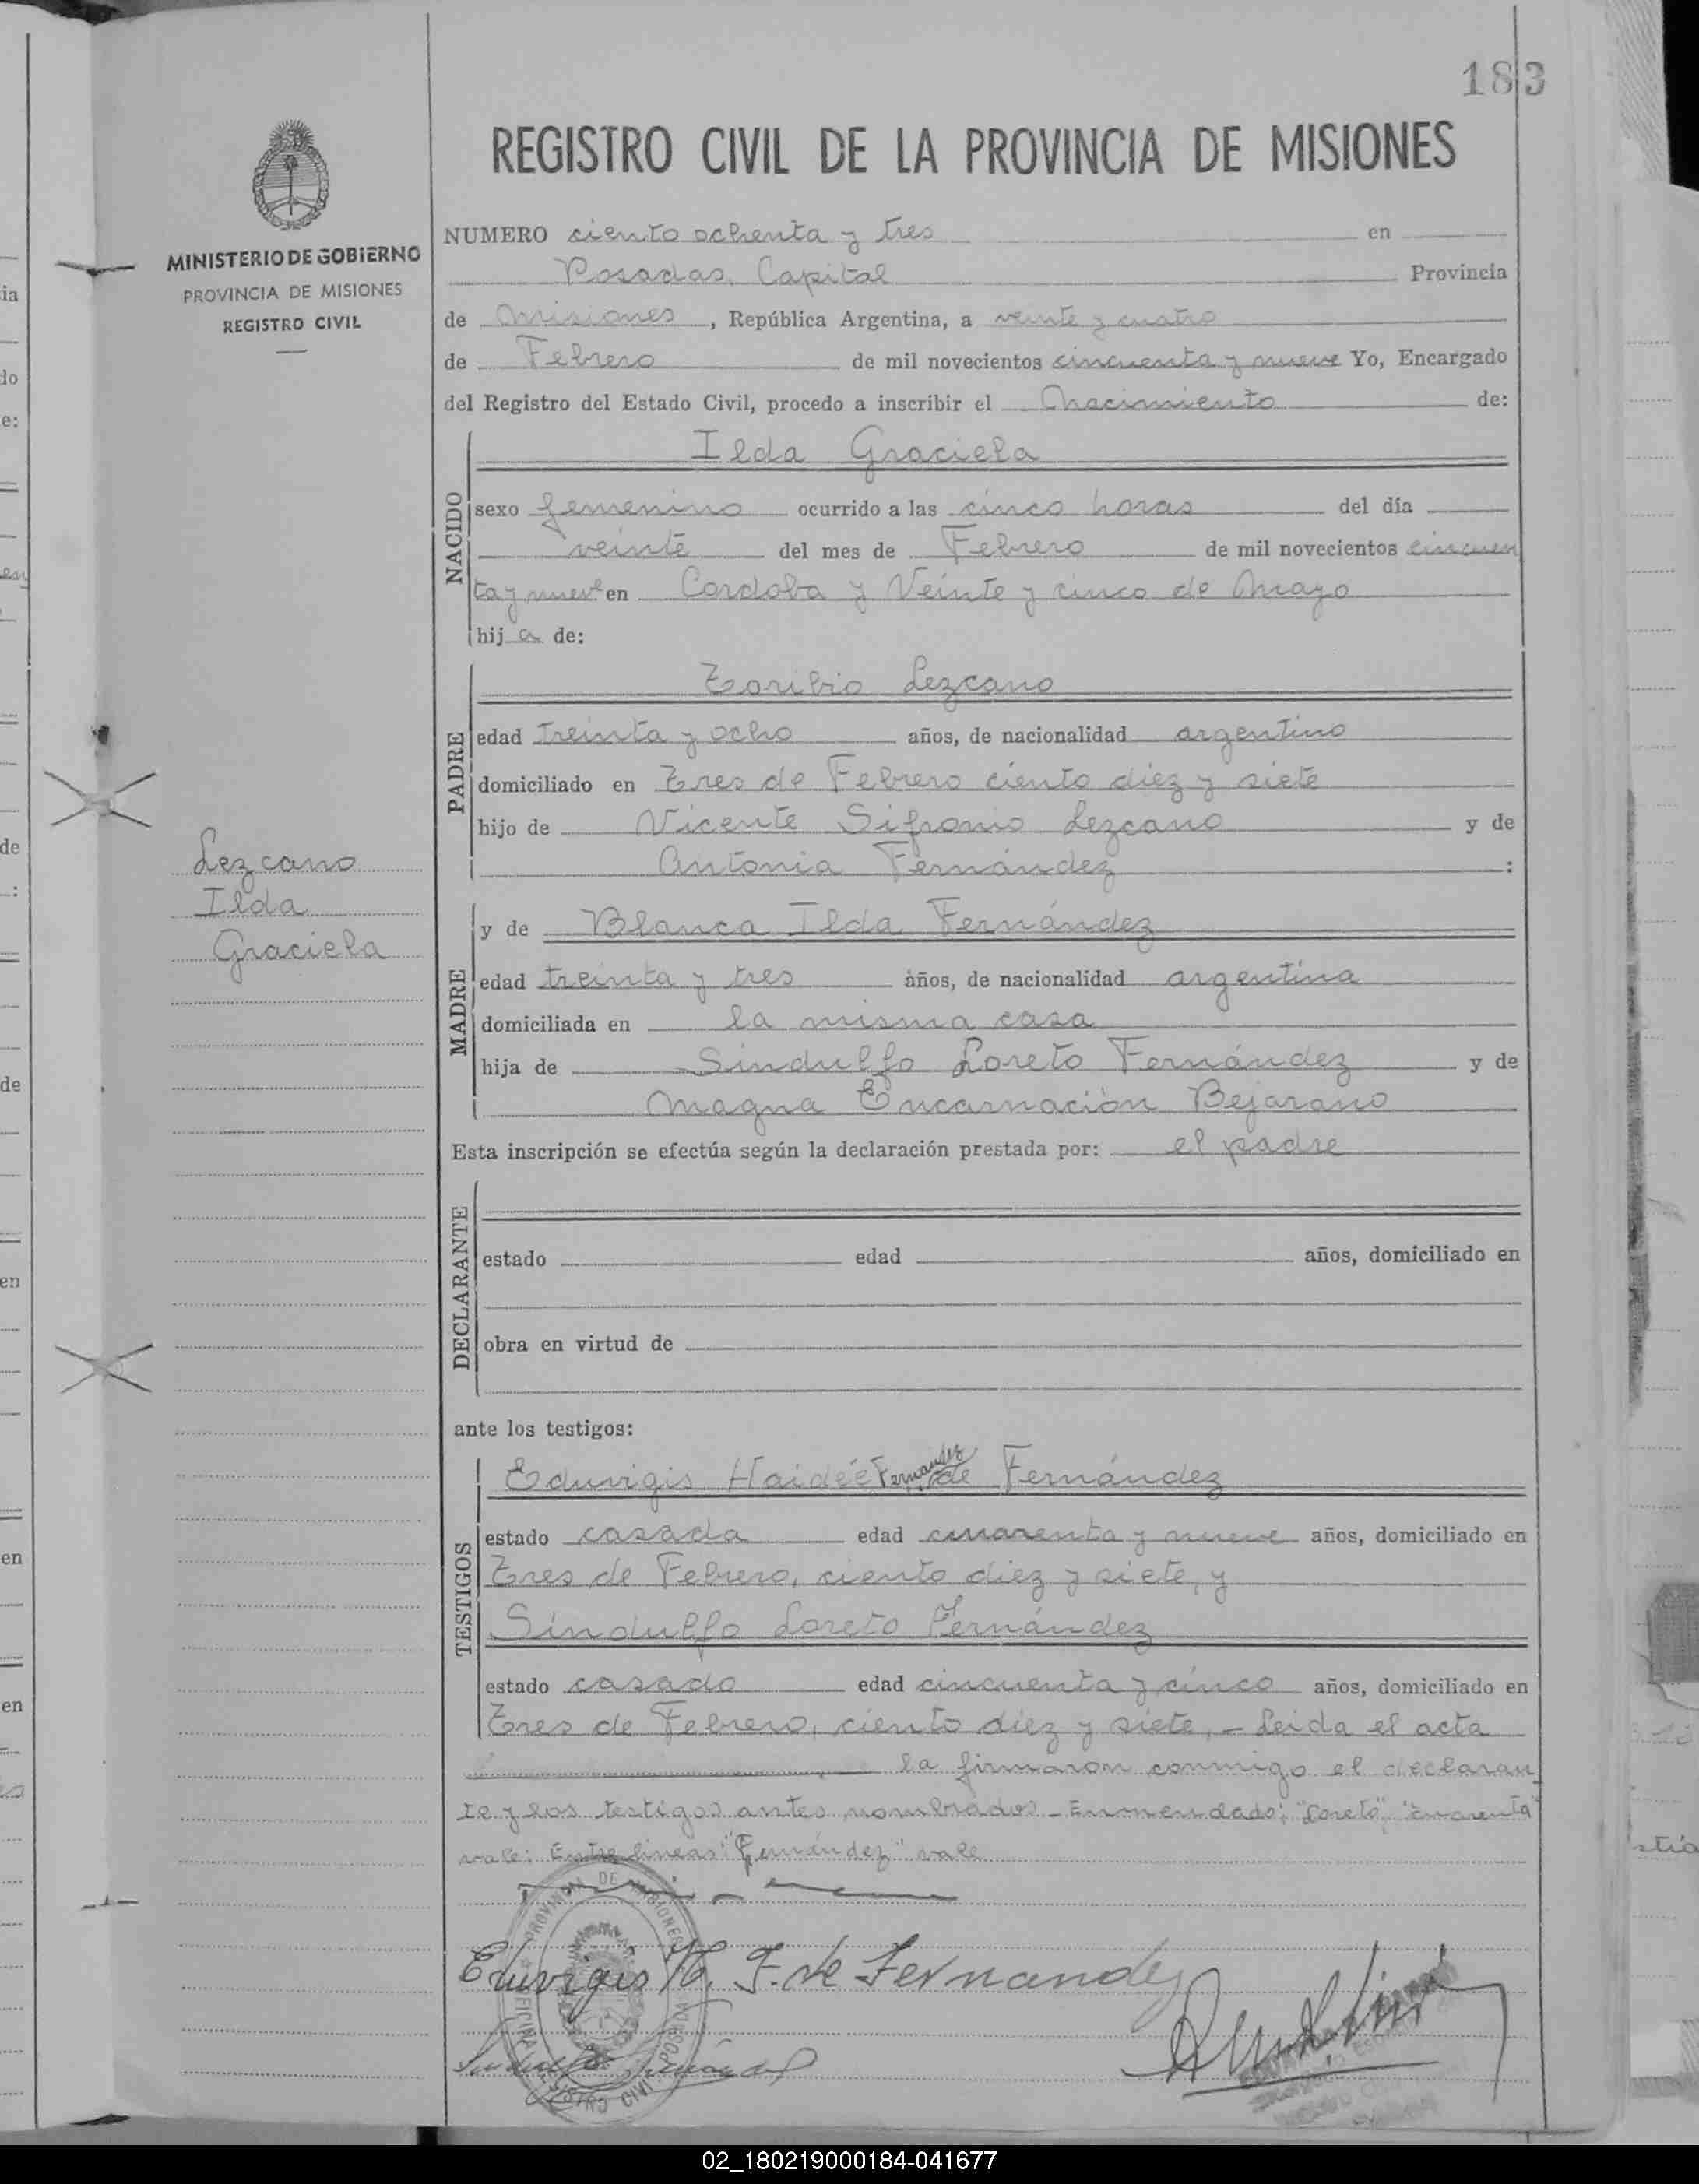 183
REGISTRO CIVIL DE LA PROVINCIA DE MISIONES
MINISTERIO DE GOBIERNO
PROVINCIA DE MISIONES
REGISTRO CIVIL
Lezcano
Ilda
Graciela
NUMERO ciento ochenta y tres en
Posadas, Capital Provincia
de Misiones, República Argentina, a veinte y cuatro
de Febrero de mil novecientos cincuenta y nueve Yo, Encargado
del Registro del Estado Civil, procedo a inscribir el Nacimiento de:
NACIDO
Ilda Graciela
sexo femenino ocurrido a las cinco horas del día
veinte del mes de Febrero de mil novecientos cincuen
ta y nueve en Cordoba y Veinte y cinco de Mayo
hija de:
PADRE
Toribio Lezcano
edad Treinta y ocho años, de nacionalidad argentino
domiciliado en Tres de Febrero ciento diez y siete
hijo de Vicente Lezcano y de
Antonia Fernández :
MADRE
y de Blanca Ilda Fernández
edad treinta y tres años, de nacionalidad argentina
domiciliada en la misma casa
hija de Sindulfo Loreto Fernández y de
Magna Encarnación Bejarano
Esta inscripción se efectúa según la declaración prestada por: el padre
DECLARANTE
estado edad años, domiciliado en
obra en virtud de
ante los testigos:
TESTIGOS
Eduvigis Haidée Fernandez de Fernández
estado casada edad cuarenta y nueve años, domiciliado en
Tres de Febrero, ciento diez y siete, y
Sindulfo Loreto Fernández
estado casado edad cincuenta y cinco años, domiciliado en
Tres de Febrero, ciento diez y siete, - Leida el acta
la firmaron conmigo el declaran
te y los testigos antes nombrados - Enmendado: "Loreto", "cuarenta"
vale: Entre lineas: "Fernández" vale
PROVINCIA DE MISIONES
Eduvigis H. F. de Fernandez
02_180219000184-041677